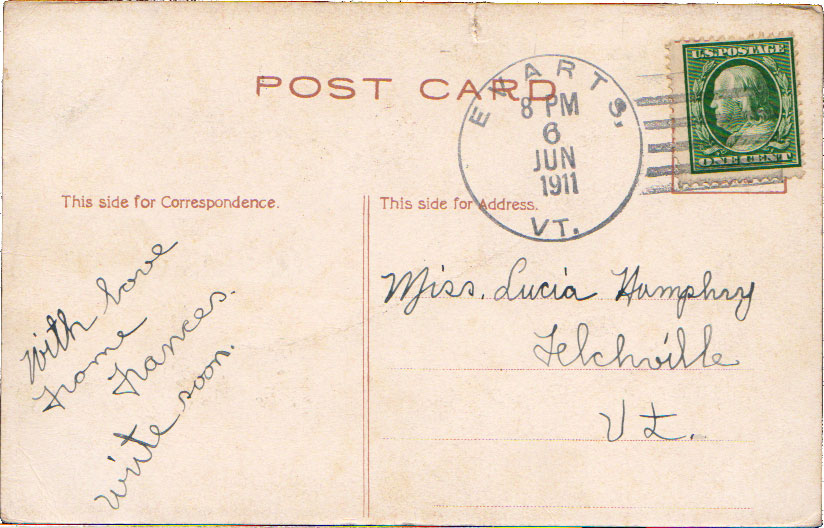 POST CARD
EVARTS,
8 PM
6
JUN
1911
VT.
U.S. POSTAGE
ONE CENT
This side for Correspondence.
With love
Frome
Frances.
write soon.
This side for Address.
Miss. Lucia Humphry
Felchville
Vt.